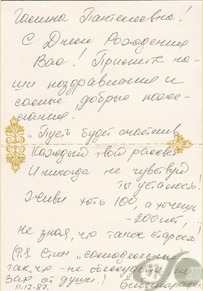 Галина Пантелеевна!
С Днем Рождения
Вас! Примите на-
ши поздравления и
самые добрые поже-
лания.
"Пусть будет счастлив
Каждый твой рассвет
И никогда не чувствуй
ты усталость!
Живи хоть 100, а хочешь
- 200 лет,
не зная, что такое старость!
(P.S. Стих
так, что - не
от души!)
11.12.89.